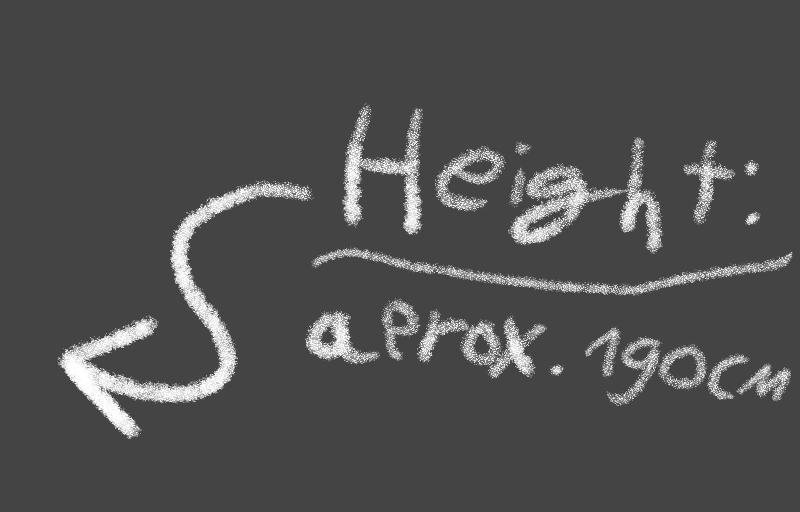 Height:
aprox. 190cm